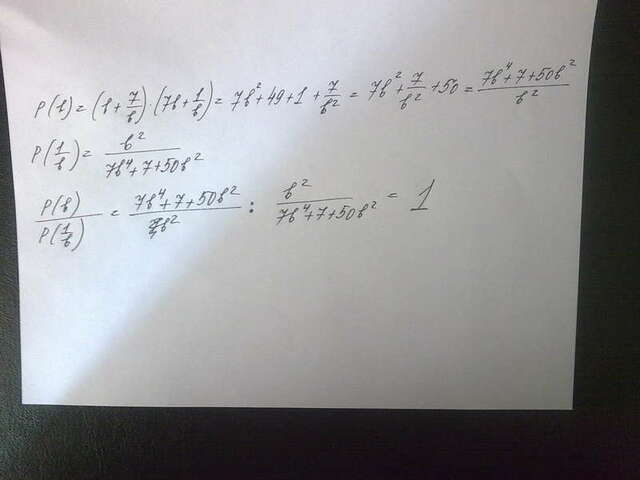 p(b) = (b + 7/b) · (7b + 1/b) = 7b² + 49 + 1 + 7/b² = 7b² + 7/b² + 50 = (7b⁴ + 7 + 50b²)/b²
p(1/b) = b²/(7b⁴ + 7 + 50b²)
p(b)/p(1/b) = (7b⁴ + 7 + 50b²)/b² : b²/(7b⁴ + 7 + 50b²) = 1